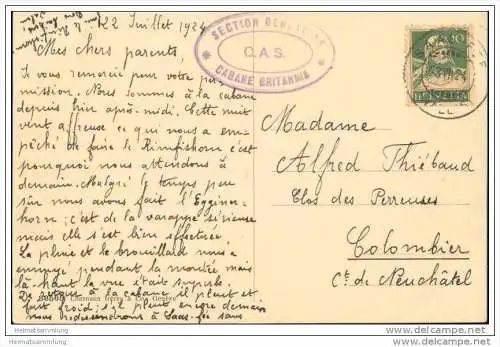 22 Juillet 1924
Mes chers parents,
Je vous remercie pour votre per-
mission. Nous sommes à la cabane
depuis hier après-midi. Cette nuit
vent affreux ce qui nous a em-
pêché de faire le Rimpfishorn c'est
pourquoi nous attendons à
demain. Malgré le temps peu
sûr nous avons fait l'Egginer-
horn; c'est de la varappe sérieuse
mais elle s'est bien effectuée.
La pluie et le brouillard nous a
ennuyé pendant la montée mais
là-haut la vue était superbe.
De retour à la cabane il pleut et
fort froid; s'il pleut encore demain
nous redescendrons à Saas-fée sans
SECTION GENEVOISE
C.A.S.
CABANE BRITANNIA
10
HELVETIA
Madame
Alfred Thiébaud
Clos des Perreuses
Colombier
Ct. de Neuchâtel
frères & Co. Genève
Heimatsammlung
Heimatsammlung